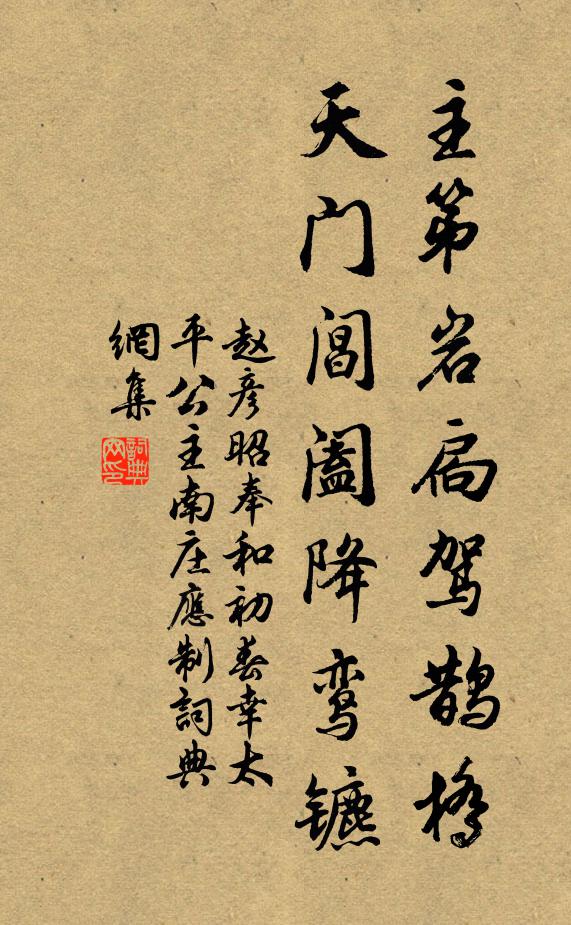 主第岩扃驾鹊桥
天门阊阖降鸾镳
赵彦昭奉和初春幸太
平公主南庄應制詞典
網集
詞典
网印